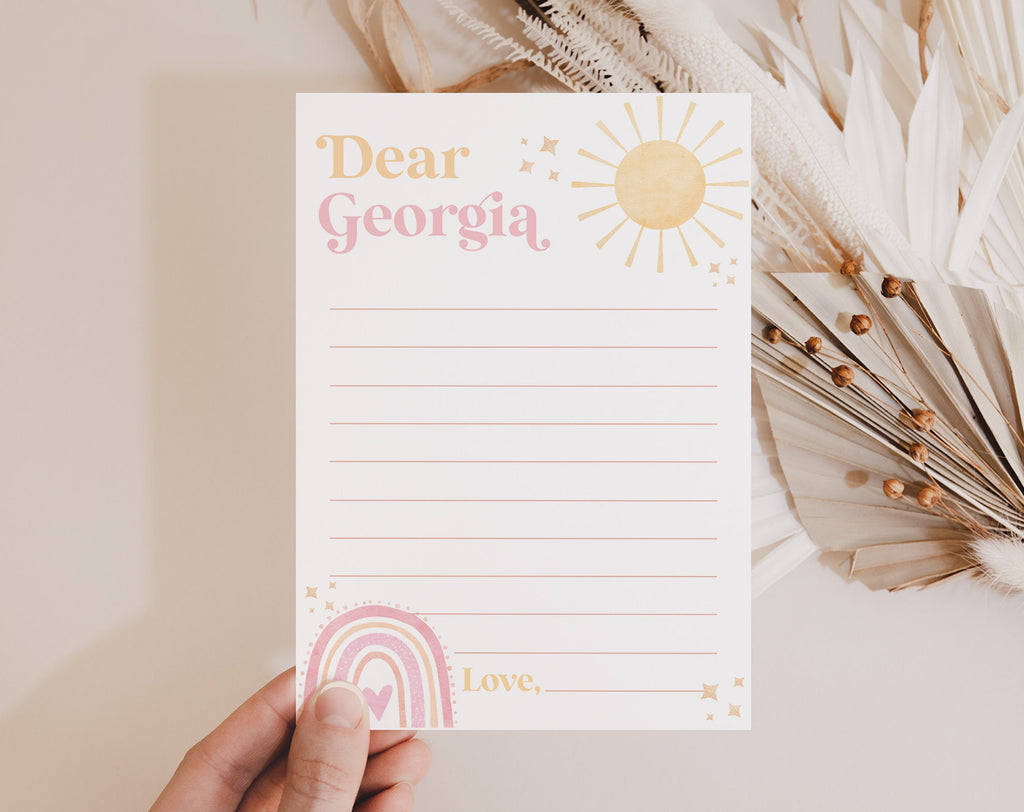 Dear
Georgia
Love,